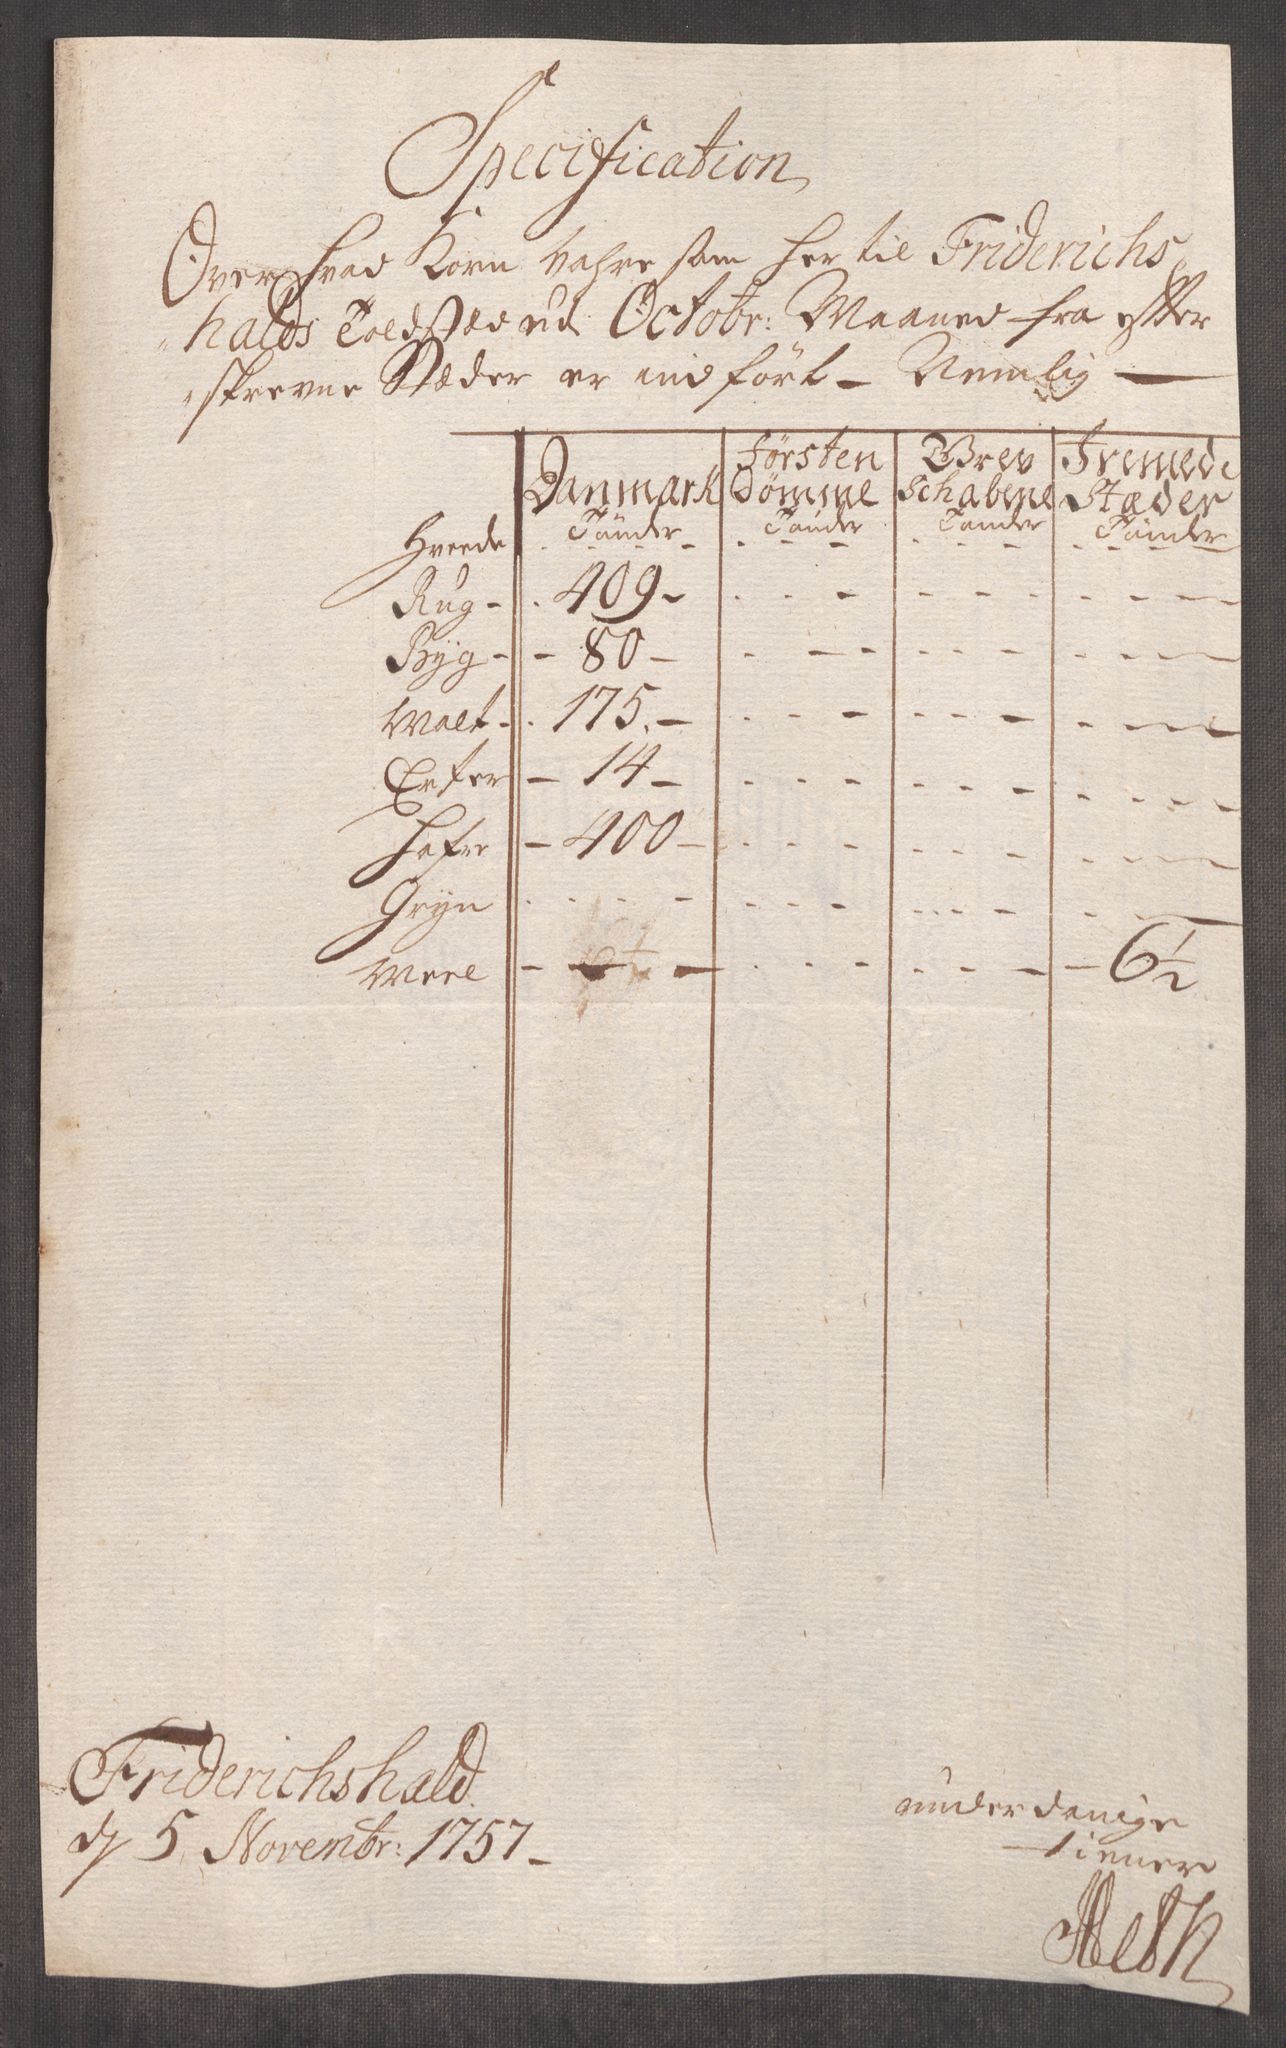 Specification
Over hvad Korn Vahre som her til Friderichs
halds Toldstæd ud Octobr: Maaned fra efter
skrevne Stæder er indført - Nemlig
Danmark Førsten Dømme Grev Schabene Fremede Stæder
Tønder Tønder Tønder Tønder
Hvede
Rug - 409 -
Byg - 80 -
Malt - 175. -
Erter - 14 -
Hafre - 400 -
Gryn
Meel - 6½
Friderichshald
d 5 Novembr: 1757 -
underdanige
tiener